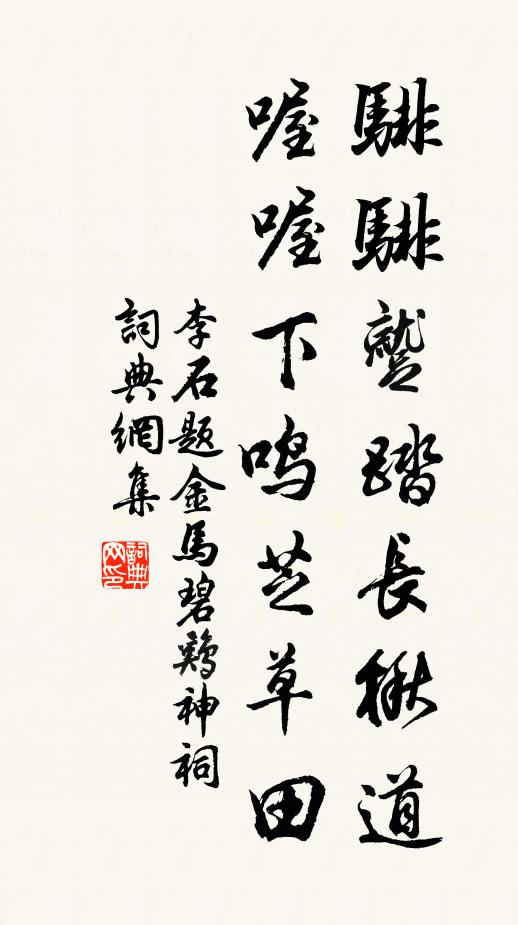 騑騑蹵踏長楸道
喔喔下鳴芝草田
李石題金馬碧鷄神祠
詞典網集
詞典网印